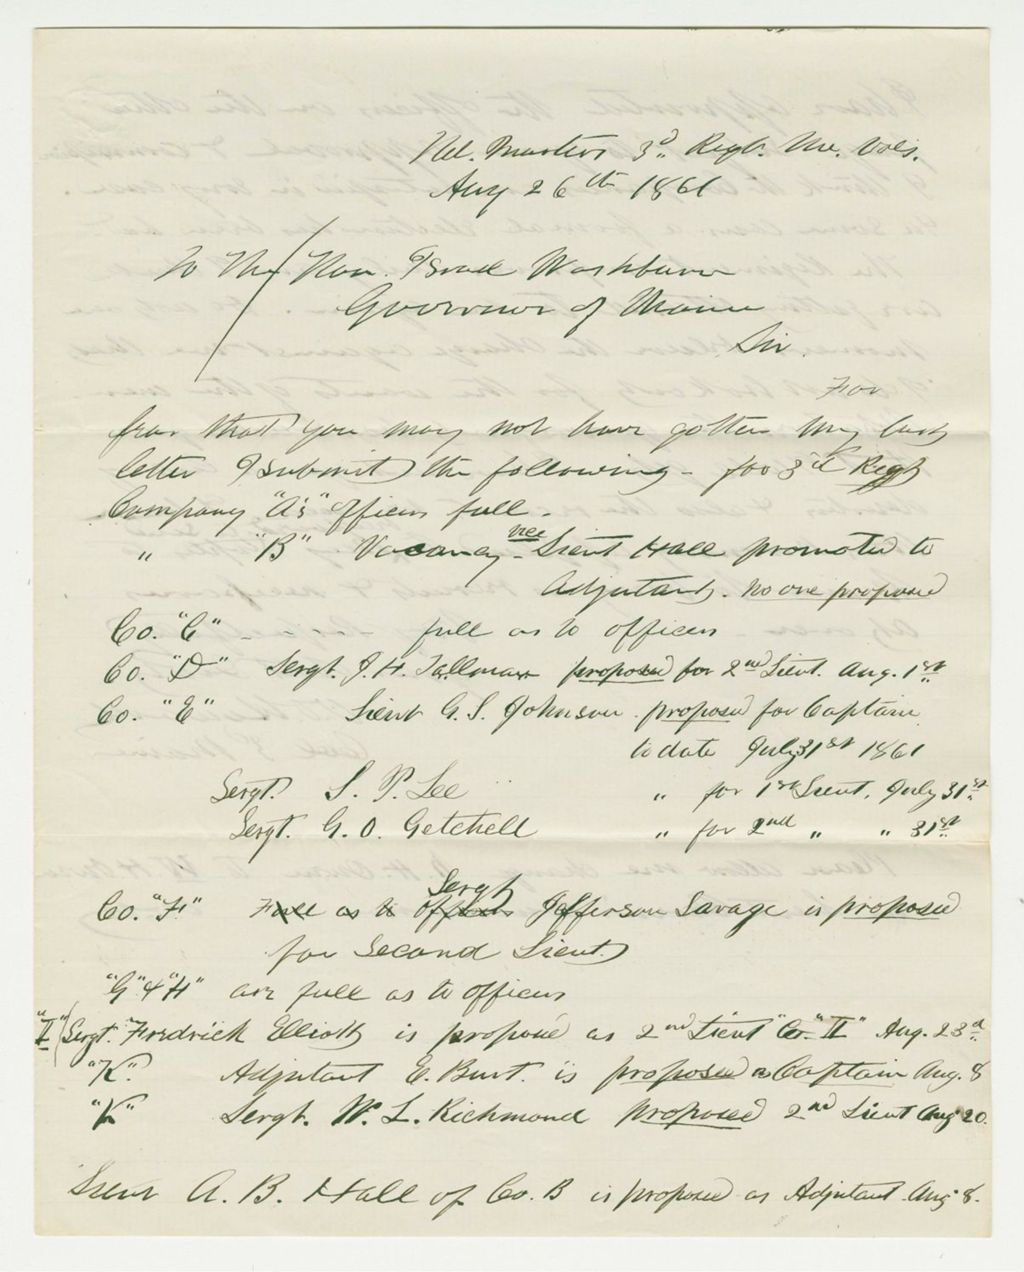 Hd. Quarters 3d. Regt. Me. Vols.
Aug 26th 1861
To The Hon. Israel Washburn
Governor of Maine
Sir.
For
fear that you may not have gotten my last
letter I submit the following - for 3rd Regt
Company "A's" officers full.
" "B" Vacancy - vice Lieut Hall promoted to
Adjutant. no one proposed
Co. "C" full as to officers
Co. "D" Sergt. J. H. Tallman proposed for 2nd Lieut. Aug. 1st
Co. "E" Lieut G. S. Johnson proposed for Captain
to date July 31st 1861
Sergt. S. P. Lee " for 1st Lieut. July 31st
Sergt. G. O. Getchell " for 2nd " " 31st
Co. "F" Full as to officers Sergt Jefferson Savage is proposed
for Second Lieut
"G" & "H" are full as to officers
"I" Sergt. Fredrick Elliott is proposed as 2nd Lieut Co. "I" Aug. 23d
"K" Adjutant E. Burt. is proposed as Captain Aug. 8
"K" Sergt. W. L. Richmond proposed 2nd Lieut Aug 20.
Lieut A. B. Hall of Co. B is proposed as Adjutant Aug 8.